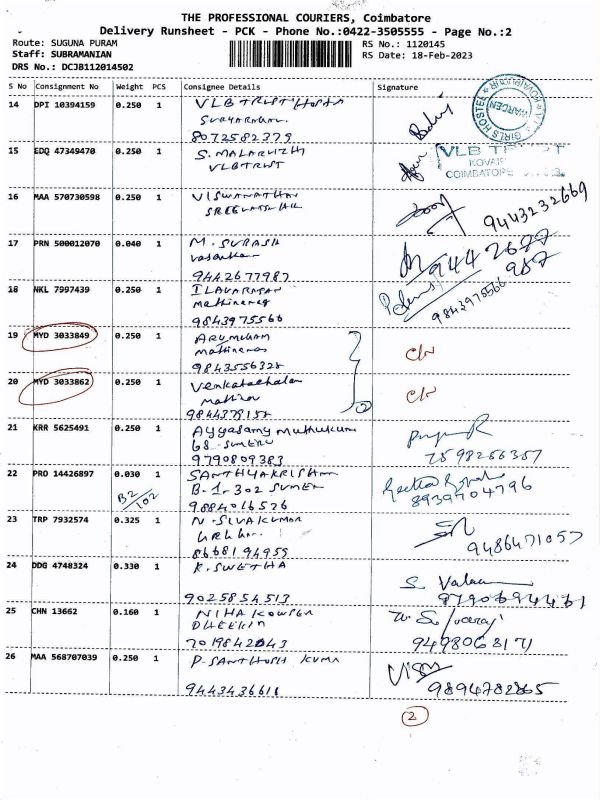 THE PROFESSIONAL COURIERS, Coimbatore
Delivery Runsheet - PCK - Phone No.:0422-3505555 - Page No.:2
Route: SUGUNA PURAM
Staff: SUBRAMANIAN
DRS No.: DCJB112014502
RS No.: 1120145
RS Date: 18-Feb-2023
S No Consignment No Weight PCS Consignee Details Signature
14 DPI 10394159 0.250 1 VLB TRUST
8072582379
GIRLS HOSTEL
WARDEN
15 EDQ 47349470 0.250 1 S. MALARVIZHI
VLBTRUST
VLB
KOVAI
COIMBATORE
16 MAA 570730598 0.250 1 VISWANATHAN
9443232669
17 PRN 500012070 0.040 1 M. SURASH
9442677987
944 2677
987
18 NKL 7997439 0.250 1 ILAVARASAN
9843975566
9843975566
19 MYD 3033849 0.250 1 ARUMUGAM
9843556328
20 MYD 3033862 0.250 1 Venkatachalam
9844379157
2
21 KRR 5625491 0.250 1 Ayyasamy Muthukum
68-SUMERU
9790809383
7598266357
22 PRO 14426897 0.030 1 SANTHYAKRISHNA
B2/102
B-1-302 SUMER
9884016526
8939704796
23 TRP 7932574 0.325 1 N-SIVAKUMAR
8668194955
9486471057
24 DDG 4748324 0.330 1 K. SWETHA
9025854513
S. Valar
25 CHN 13662 0.160 1 NIHA
7019842043
9498068171
26 MAA 568707039 0.250 1 P-SANTHOSH KUMA
9443436616
9894782865
2